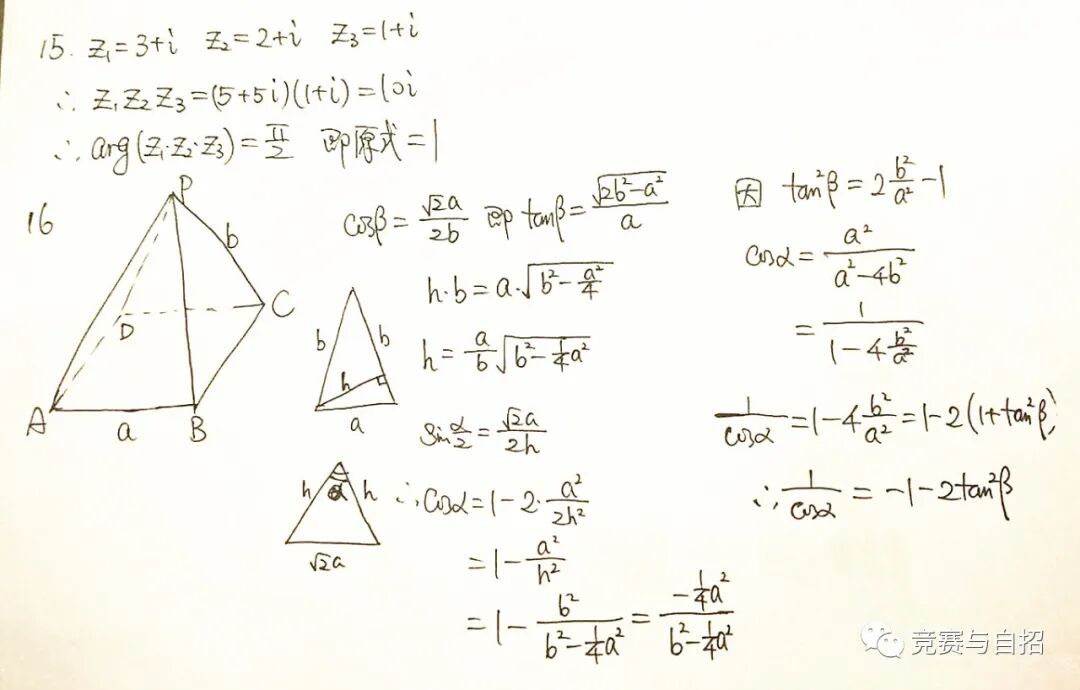 15. z₁=3+i z₂=2+i z₃=1+i
∴ z₁z₂z₃=(5+5i)(1+i)=10i
∴ arg(z₁·z₂·z₃)=π/2 即原式=1
16
P
b
C
D
A
a
B
cosβ=√2a/2b 即 tanβ=√(2b²-a²)/a
h·b=a·√(b²-a²/4)
b
b
h
a
h=a/b √(b²-¼a²)
sin α/2=√2a/2h
h
α
h
√2a
∴cosα=1-2·a²/2h²
=1-a²/h²
=1-b²/(b²-¼a²)=-¼a²/(b²-¼a²)
因 tan²β=2b²/a²-1
cosα=a²/(a²-4b²)
=1/(1-4b²/a²)
1/cosα=1-4b²/a²=1-2(1+tan²β)
∴1/cosα=-1-2tan²β
竞赛与自招